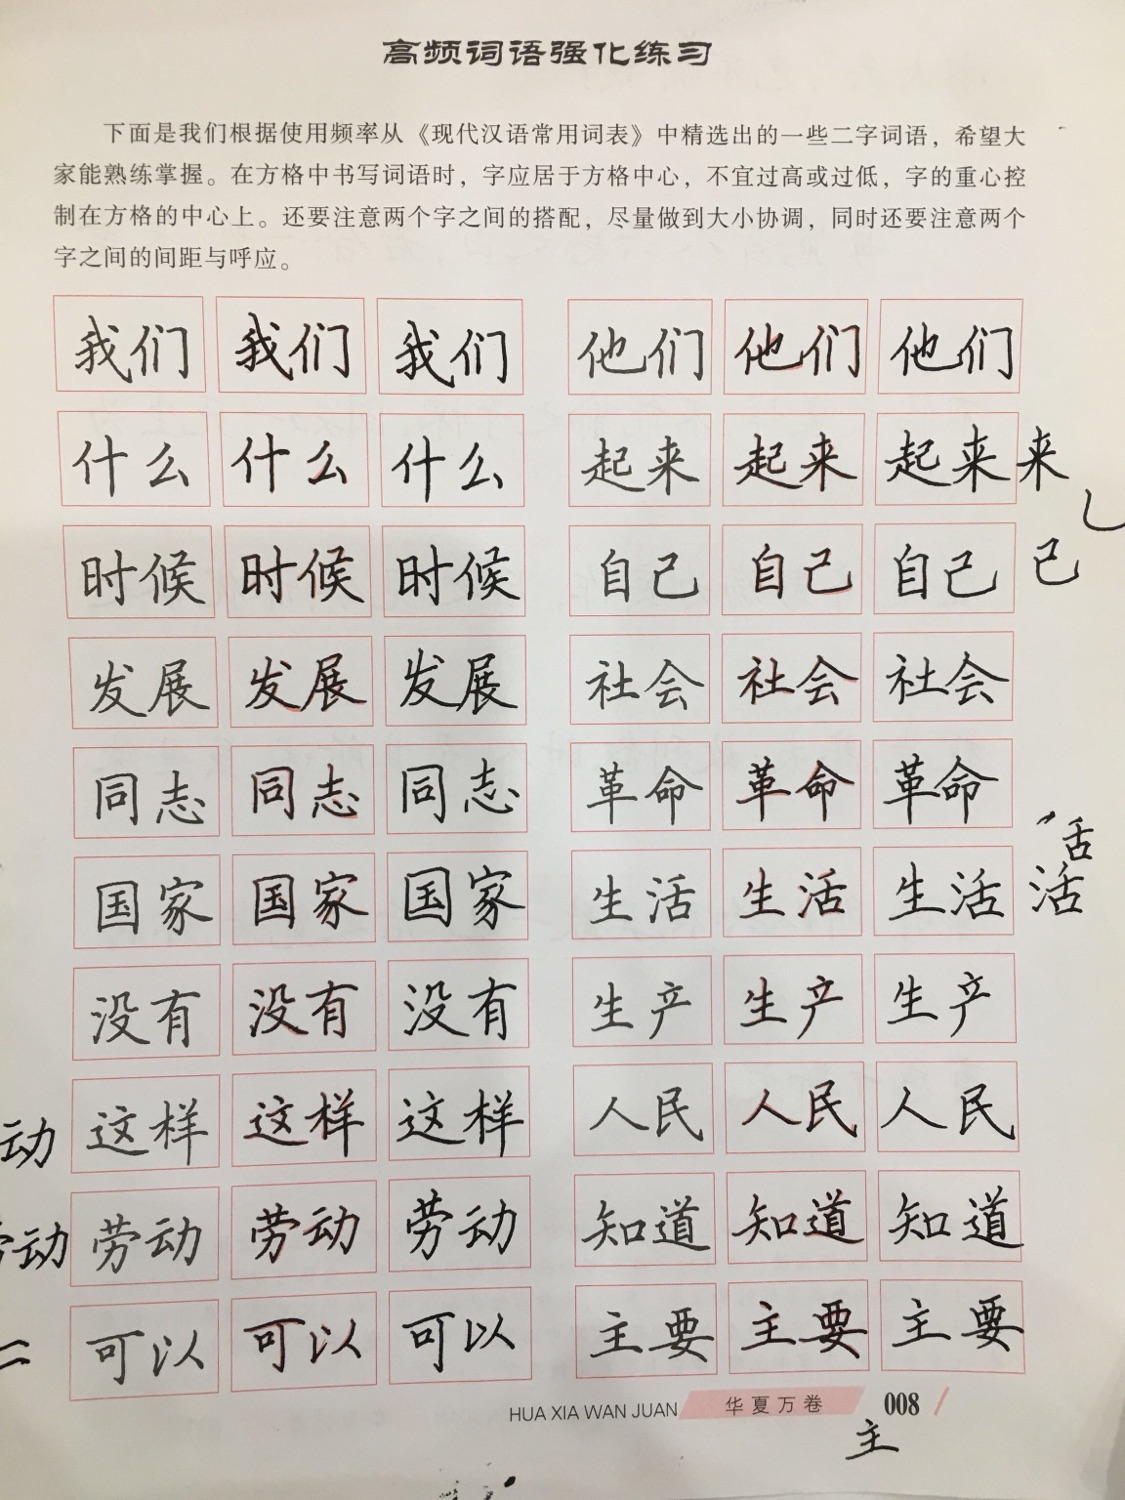 高频词语强化练习
下面是我们根据使用频率从《现代汉语常用词表》中精选出的一些二字词语，希望大
家能熟练掌握。在方格中书写词语时，字应居于方格中心，不宜过高或过低，字的重心控
制在方格的中心上。还要注意两个字之间的搭配，尽量做到大小协调，同时还要注意两个
字之间的间距与呼应。
我们 我们 我们 他们 他们 他们
什么 什么 什么 起来 起来 起来 来
时候 时候 时候 自己 自己 自己 己
发展 发展 发展 社会 社会 社会
同志 同志 同志 革命 革命 革命
国家 国家 国家 生活 生活 生活 活 活
没有 没有 没有 生产 生产 生产
动 这样 这样 这样 人民 人民 人民
劳动 劳动 劳动 劳动 知道 知道 知道
可以 可以 可以 主要 主要 主要
HUA XIA WAN JUAN 华夏万卷 008
主